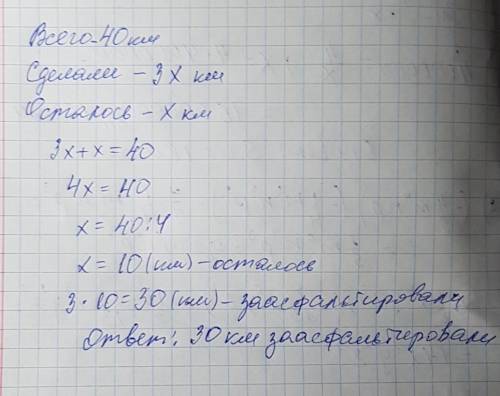 Всего-40км
Сделали - 3х км
Осталось - х км
3х+х=40
4х=40
х=40:4
х=10(км)-осталось
3·10=30(км)-заасфальтировали
Ответ: 30км заасфальтировали